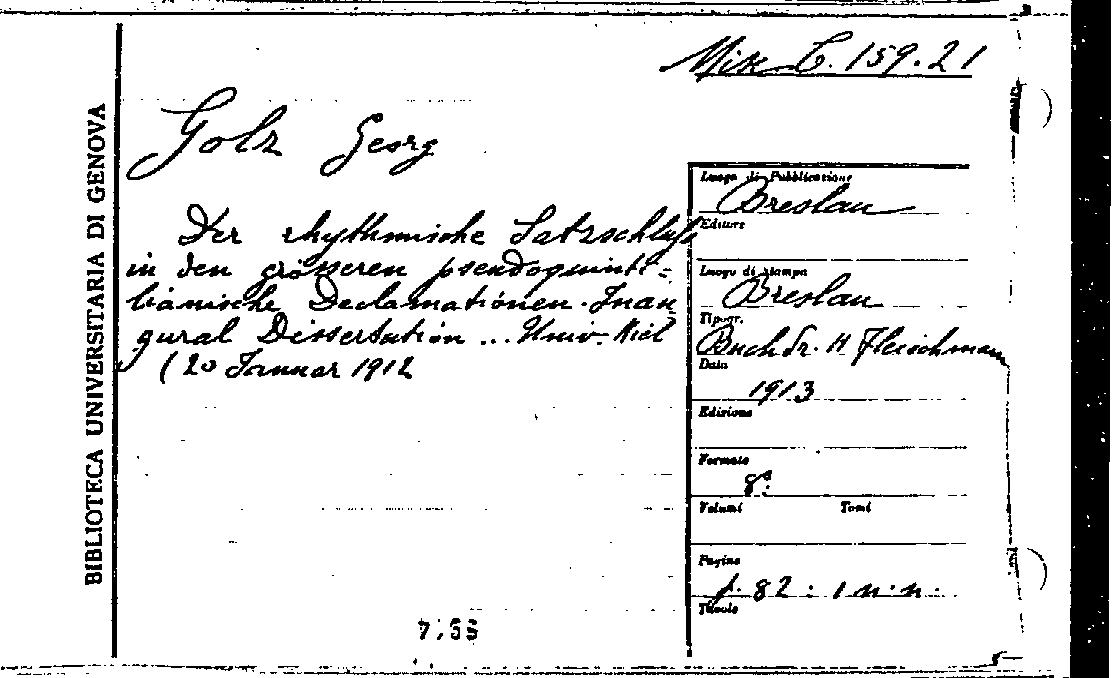 Misc C. 159.21
BIBLIOTECA UNIVERSITARIA DI GENOVA
Golz Georg
Der rhythmische Satzschluss
in den grösseren pseudoquinti=
lianische Declamationen. Inau
gural Dissertation ... Univ. Kiel
(20 Januar 1912
Luogo di Pubblicazione
Breslau
Editore
Luogo di stampa
Breslau
Tipogr.
Buchdr. H Fleischmann
Data
1913
Edizione
Formato
8º
Volumi Tomi
Pagine
p. 82 : 1 n.n.
Tavole